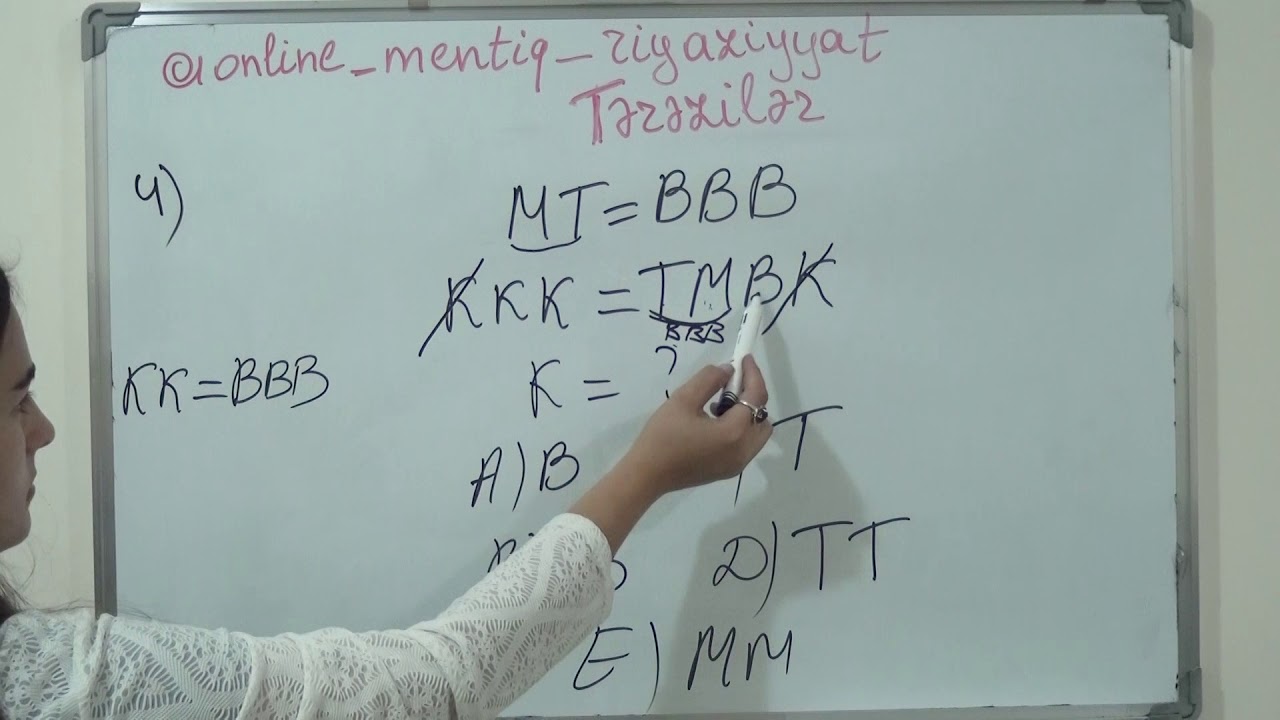 @online_mentiq_riyaziyyat
Tərəzilər
4)
MT = BBB
KKK = TMBK
BBB
KK = BBB
K = ?
A) B
T
D) TT
E) MM